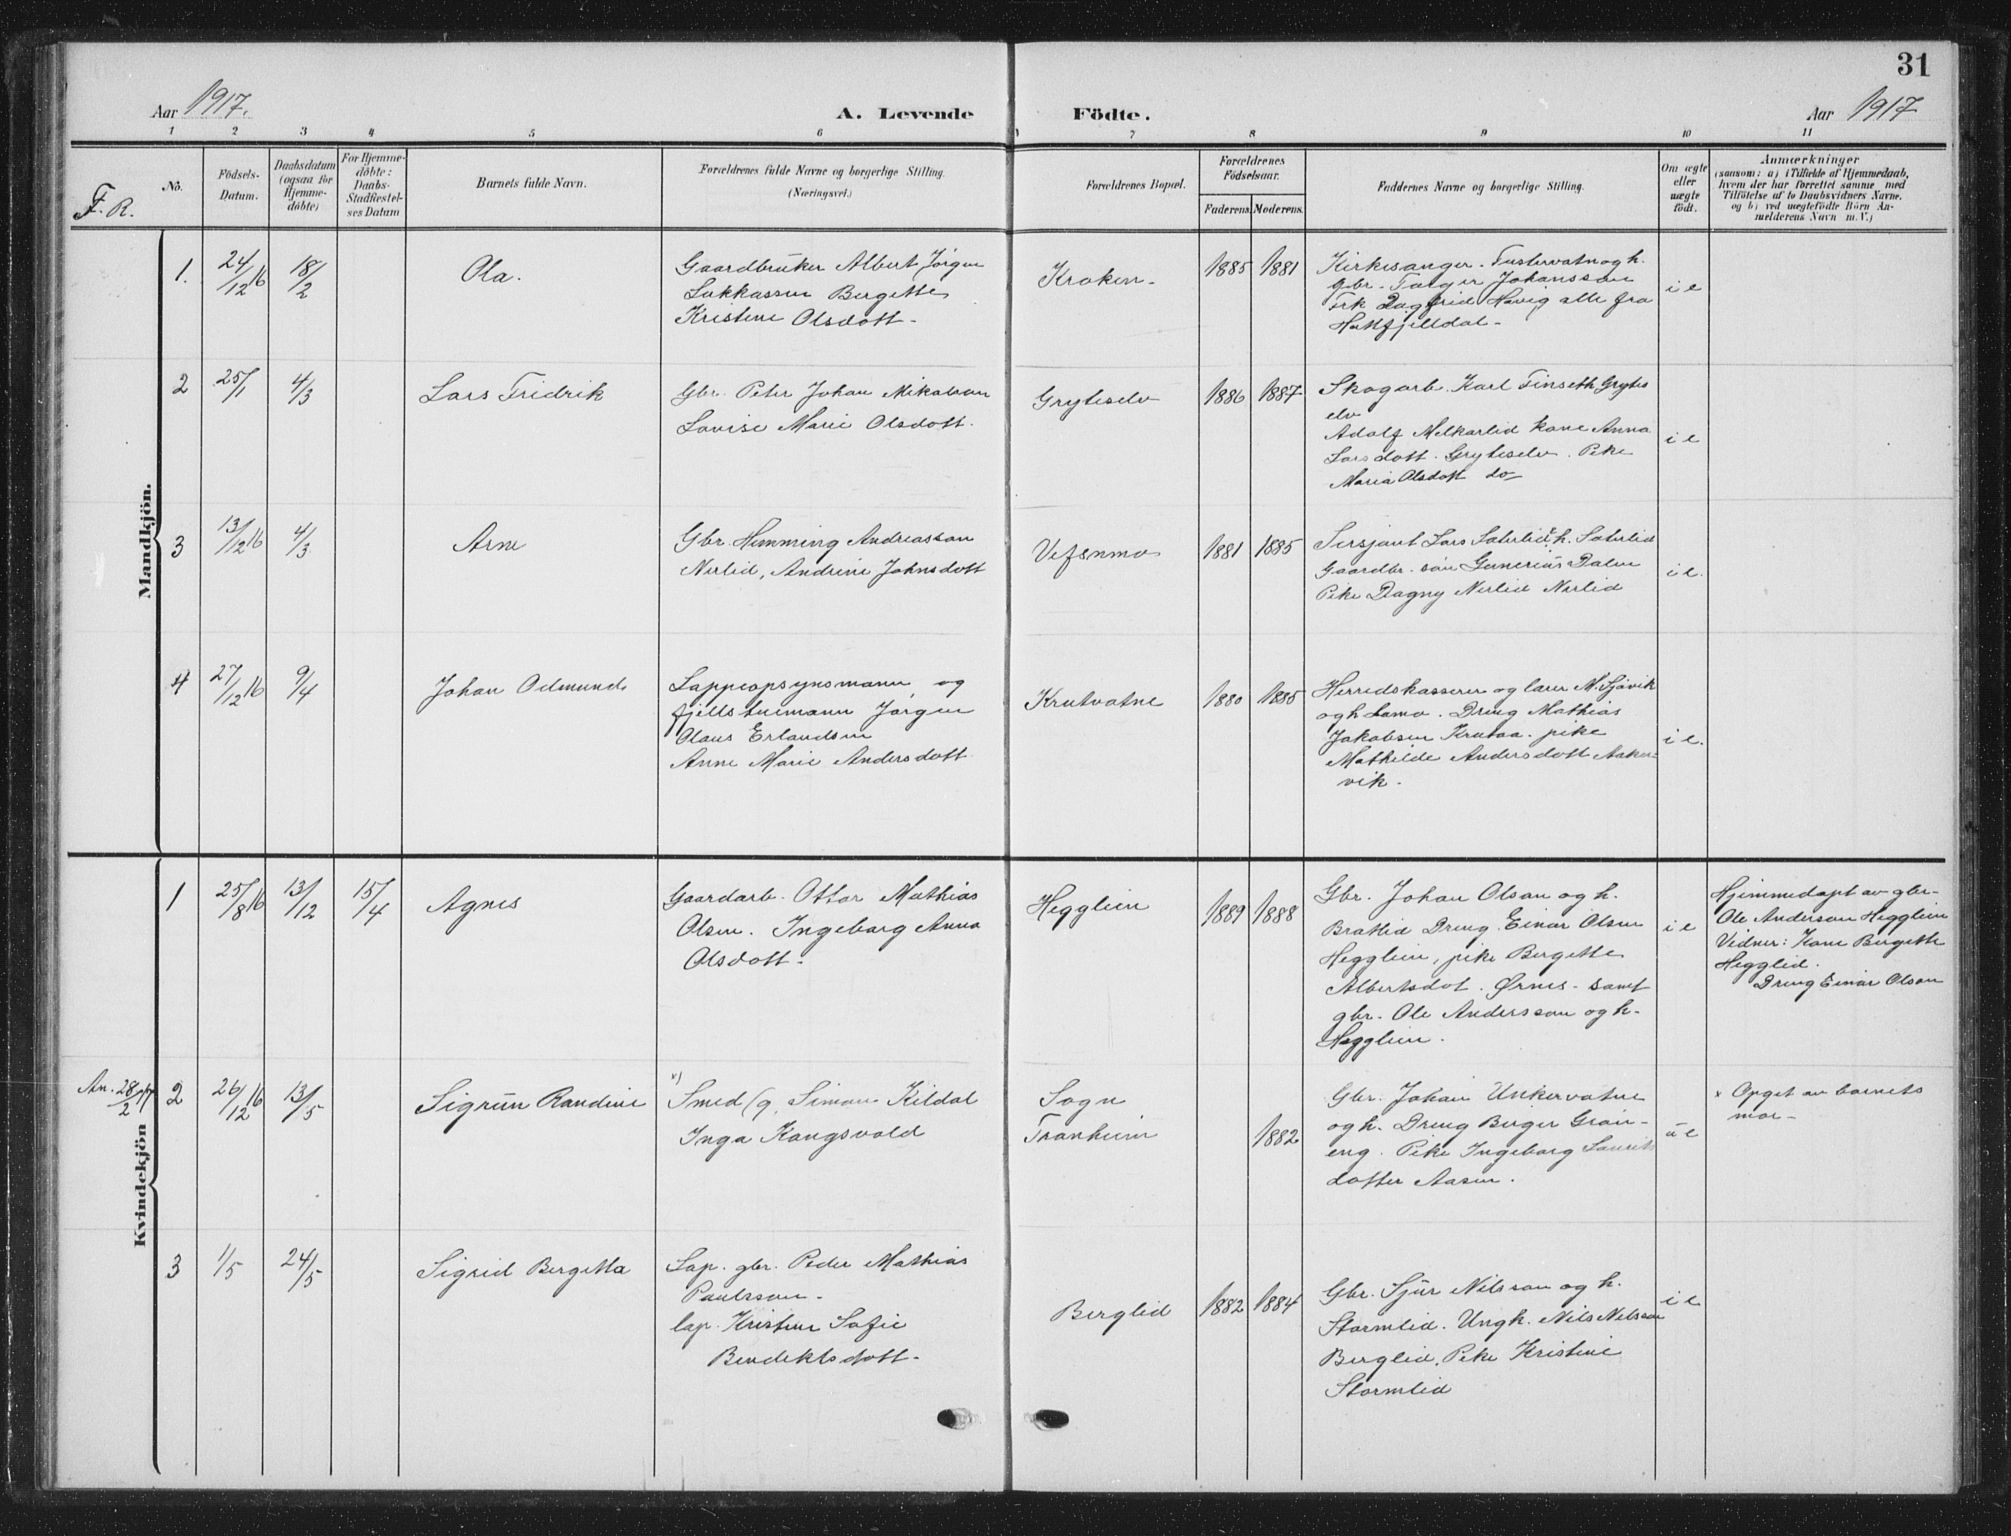 31
Aar 1917.
A. Levende
Födte.
Aar 1917
1 2 3 4 5 6 7 8 9 10 11
F. R.
No.
Födsels-
Datum.
Daabsdatum
(ogsaa for
Hjemme-
döbte)
For Hjemme-
döbte:
Daabs-
Stadfæstel-
ses Datum
Barnets fulde Navn.
Forældrenes fulde Navne og borgerlige Stilling.
(Næringsvei.)
Forældrenes Bopæl.
Forældrenes
Födselsaar.
Faderens. Moderens.
Faddernes Navne og borgerlige Stilling.
Om ægte
eller
uægte
født.
Anmærkninger
(saasom: a) i Tilfælde af Hjemmedaab,
hvem der har forrettet samme med
Tilföielse af to Daabsvidners Navne.
og b) ved uægtefödte Börn An-
melderens Navn m. V.)
Mandkjön.
1.
24/12 16
18/2
Ola.
Gaardbruker Albert Jørgen
Lukkassen Bergette
Kristine Olsdatt-
Kroken-
1885 1881
Kirkesanger. Fustervatn og h.
gbr. Johansson
Frk Dagfrid Havig alle fra
Hatfjelldal-
i e
2
25/1
4/3
Lars Fridrik
Gbr. Peter Johan Mikalsen
Lovise Marie Olsdatt.
Gryteselv
1886 1887
Skogarb. Karl Finseth Grytes
elv
Adolf Melkarlid kone Anna
Larsdatt. Gryteselv. Pike
Maria Olsdatt do-
i e
3
13/12 16
4/3
Arne
Gbr. Hemming Andreassan
Nerlid, Andrine Johnsdatt
Vefsnmo
1881 1885
Sersjant Lars Sæterlid, h. Sæterlid
Gaardbr. sön Dalen
Pike Dagny Nerlid Nerlid
i e.
4
27/12 16
9/4
Johan Odmund
Lappeopsynsmann og
fjellstuemann Jørgen
Olaus Erlandsen
Anne Marie Andersdatt
Krutvatne
1880 1885
Herredskasserer og lærer M. Sjøvik
og h. Lamo. Dreng Mathias
Jakobsen Krutaa. pike
Mathilde Andersdatt Aaker-
vik.
i e.
Kvindekjön
1
25/8 16
13/12
15/4
Agnes
Gaardarb. Ottar Mathias
Olsen. Ingeborg Anna
Olsdatt-
Hegglien
1889 1888
Gbr. Johan Olsan og h.
Brattlid Dreng Einar Olsen
Hegglien, pike Bergette
Albertsdot. Ørnes- samt
gbr. Ole Anderssan og h-
Hegglien.
i e
Hjemmedøpt av gbr-
Ole Andersan Hegglien
Vidner: Kone Bergette
Hegglid.
Dreng Einar Olsan
An. 28/2 17
2
26/12 16
13/5
Sigrün Randine
x)
Smed Simon Kildal
Inga Kongsvold
Sogn
Tronheim
1882
Gbr. Johan Unkervatne
og h. Dreng Birger Grön-
eng. Pike Ingeborg Laurits
datter Aasen.
u e
x Opget av barnets
mor-
3
1/5
24/5
Sigrid Bergetta
Lap. gbr. Peder Mathias
Paulssan-
lap. Kristine Sofie
Bendiktsdatt-
Berglid
1882 1884
Gbr. Sjür Nilssan og h.
Stormlid. Ungk. Nils Nilssan
Berglid. Pike Kristine
Stormlid
i e